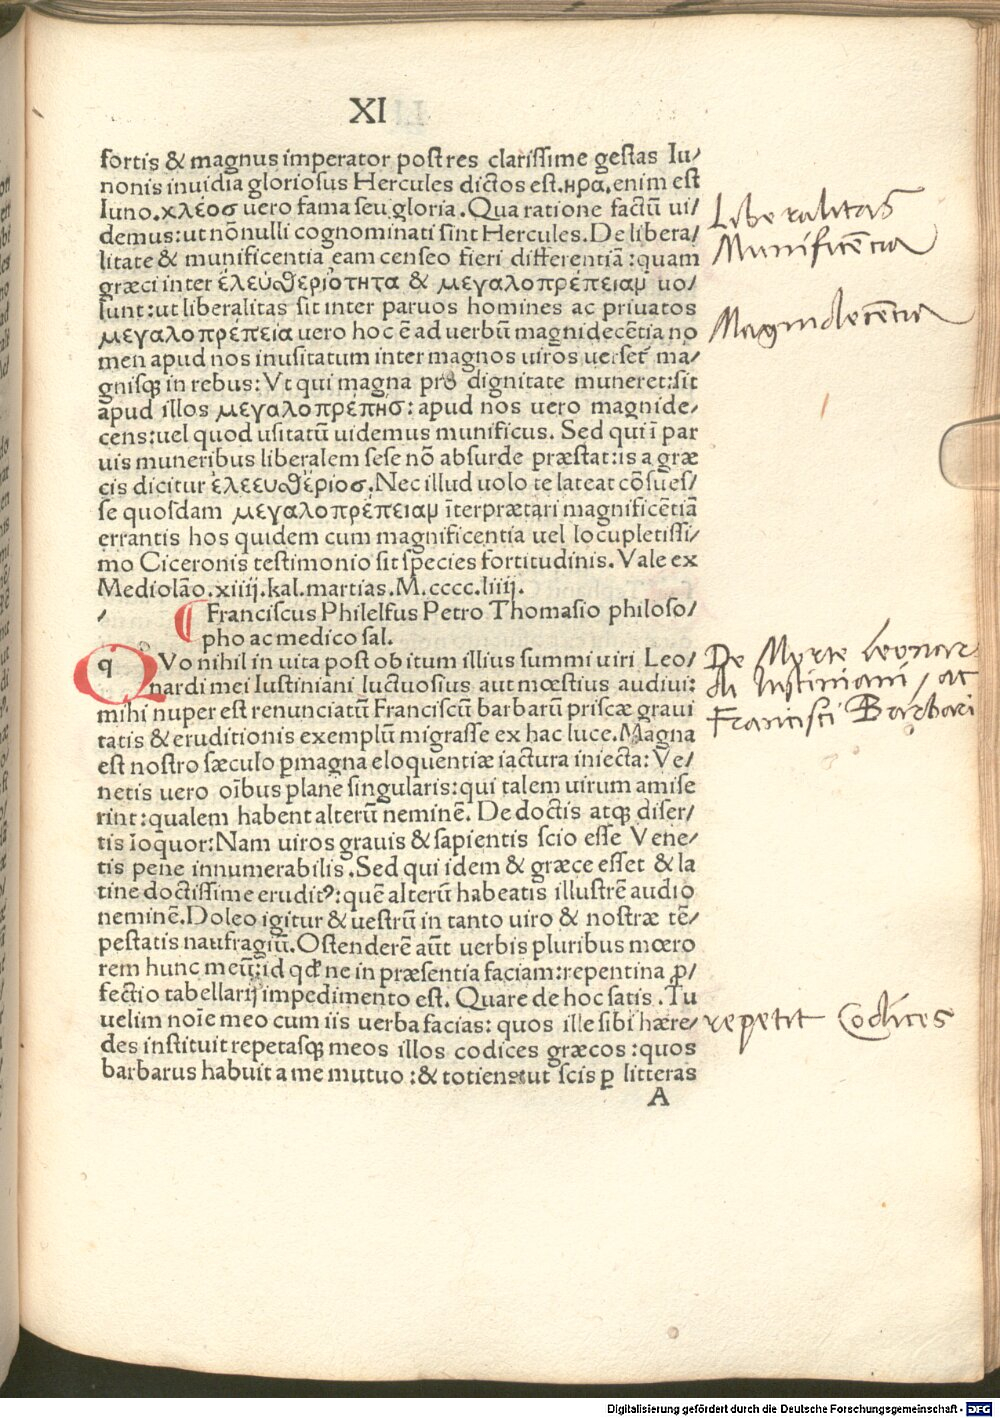 XI
fortis & magnus imperator post res clarissime gestas Iu/
nonis inuidia gloriosus Hercules dictos est.ηρα.enim est
Iuno.χλέοσ uero fama seu gloria. Qua ratione factū ui/
demus:ut nōnulli cognominati sint Hercules. De libera/
litate & munificentia eam censeo fieri differentiā:quam
græci inter ἐλευθεριότητα & μεγαλοπρέπειαμ uo/
lunt:ut liberalitas sit inter paruos homines ac priuatos
μεγαλοπρέπεια uero hoc ē ad uerbū magnidecētia no
men apud nos inusitatum inter magnos uiros ma/
gnisqȝ in rebus: Vt qui magna dignitate muneret:sit
apud illos μεγαλοπρέπησ: apud nos uero magnide/
cens:uel quod usitatū uidemus munificus. Sed qui ī par
uis muneribus liberalem sese nō absurde præstat:is a græ
cis dicitur ἐλεευθέριοσ. Nec illud uolo te lateat cōsues/
se quosdam μεγαλοπρέπειαμ īterprætari magnificētiā
errantis hos quidem cum magnificentia uel locupletissi/
mo Ciceronis testimonio sit species fortitudinis. Vale ex
Mediolāo.xiiij.kal.martias.M.cccc.liiij.
Franciscus Philelfus Petro Thomasio philoso/
pho ac medico sal.
q QVo nihil in uita post obitum illius summi uiri Leo/
nardi mei Iustiniani luctuosius aut mœstius audiui:
mihi nuper est renunciatū Franciscū barbarū priscæ graui
tatis & eruditionis exemplū migrasse ex hac luce. Magna
est nostro sæculo ꝑmagna eloquentiæ iactura iniecta: Ve/
netis uero oībus plane singularis:qui talem uirum amise
rint:qualem habent alterū neminē. De doctis atqȝ diser/
tis loquor: Nam uiros grauis & sapientis scio esse Vene/
tis pene innumerabilis. Sed qui idem & græce esset & la
tine doctissime eruditꝰ:quē alterū habeatis illustrē audio
neminē. Doleo igitur & uestrū in tanto uiro & nostræ tē/
pestatis naufragiū. Ostenderē aūt uerbis pluribus mœro
rem hunc meū:id qđ ne in præsentia faciam:repentina ꝓ/
fectio tabellarij impedimento est. Quare de hoc satis. Tu
uelim noīe meo cum iis uerba facias: quos ille sibi hære/
des instituit repetasqȝ meos illos codices græcos:quos
barbarus habuit a me mutuo:& totiens:ut scis ꝑ litteras
A
Liberalitas
Munificēcia
Magnidecēcia
De Morte Leonar
di Iustiniani / at
Francisci Barbari
repetit Codices
Digitalisierung gefördert durch die Deutsche Forschungsgemeinschaft - DFG